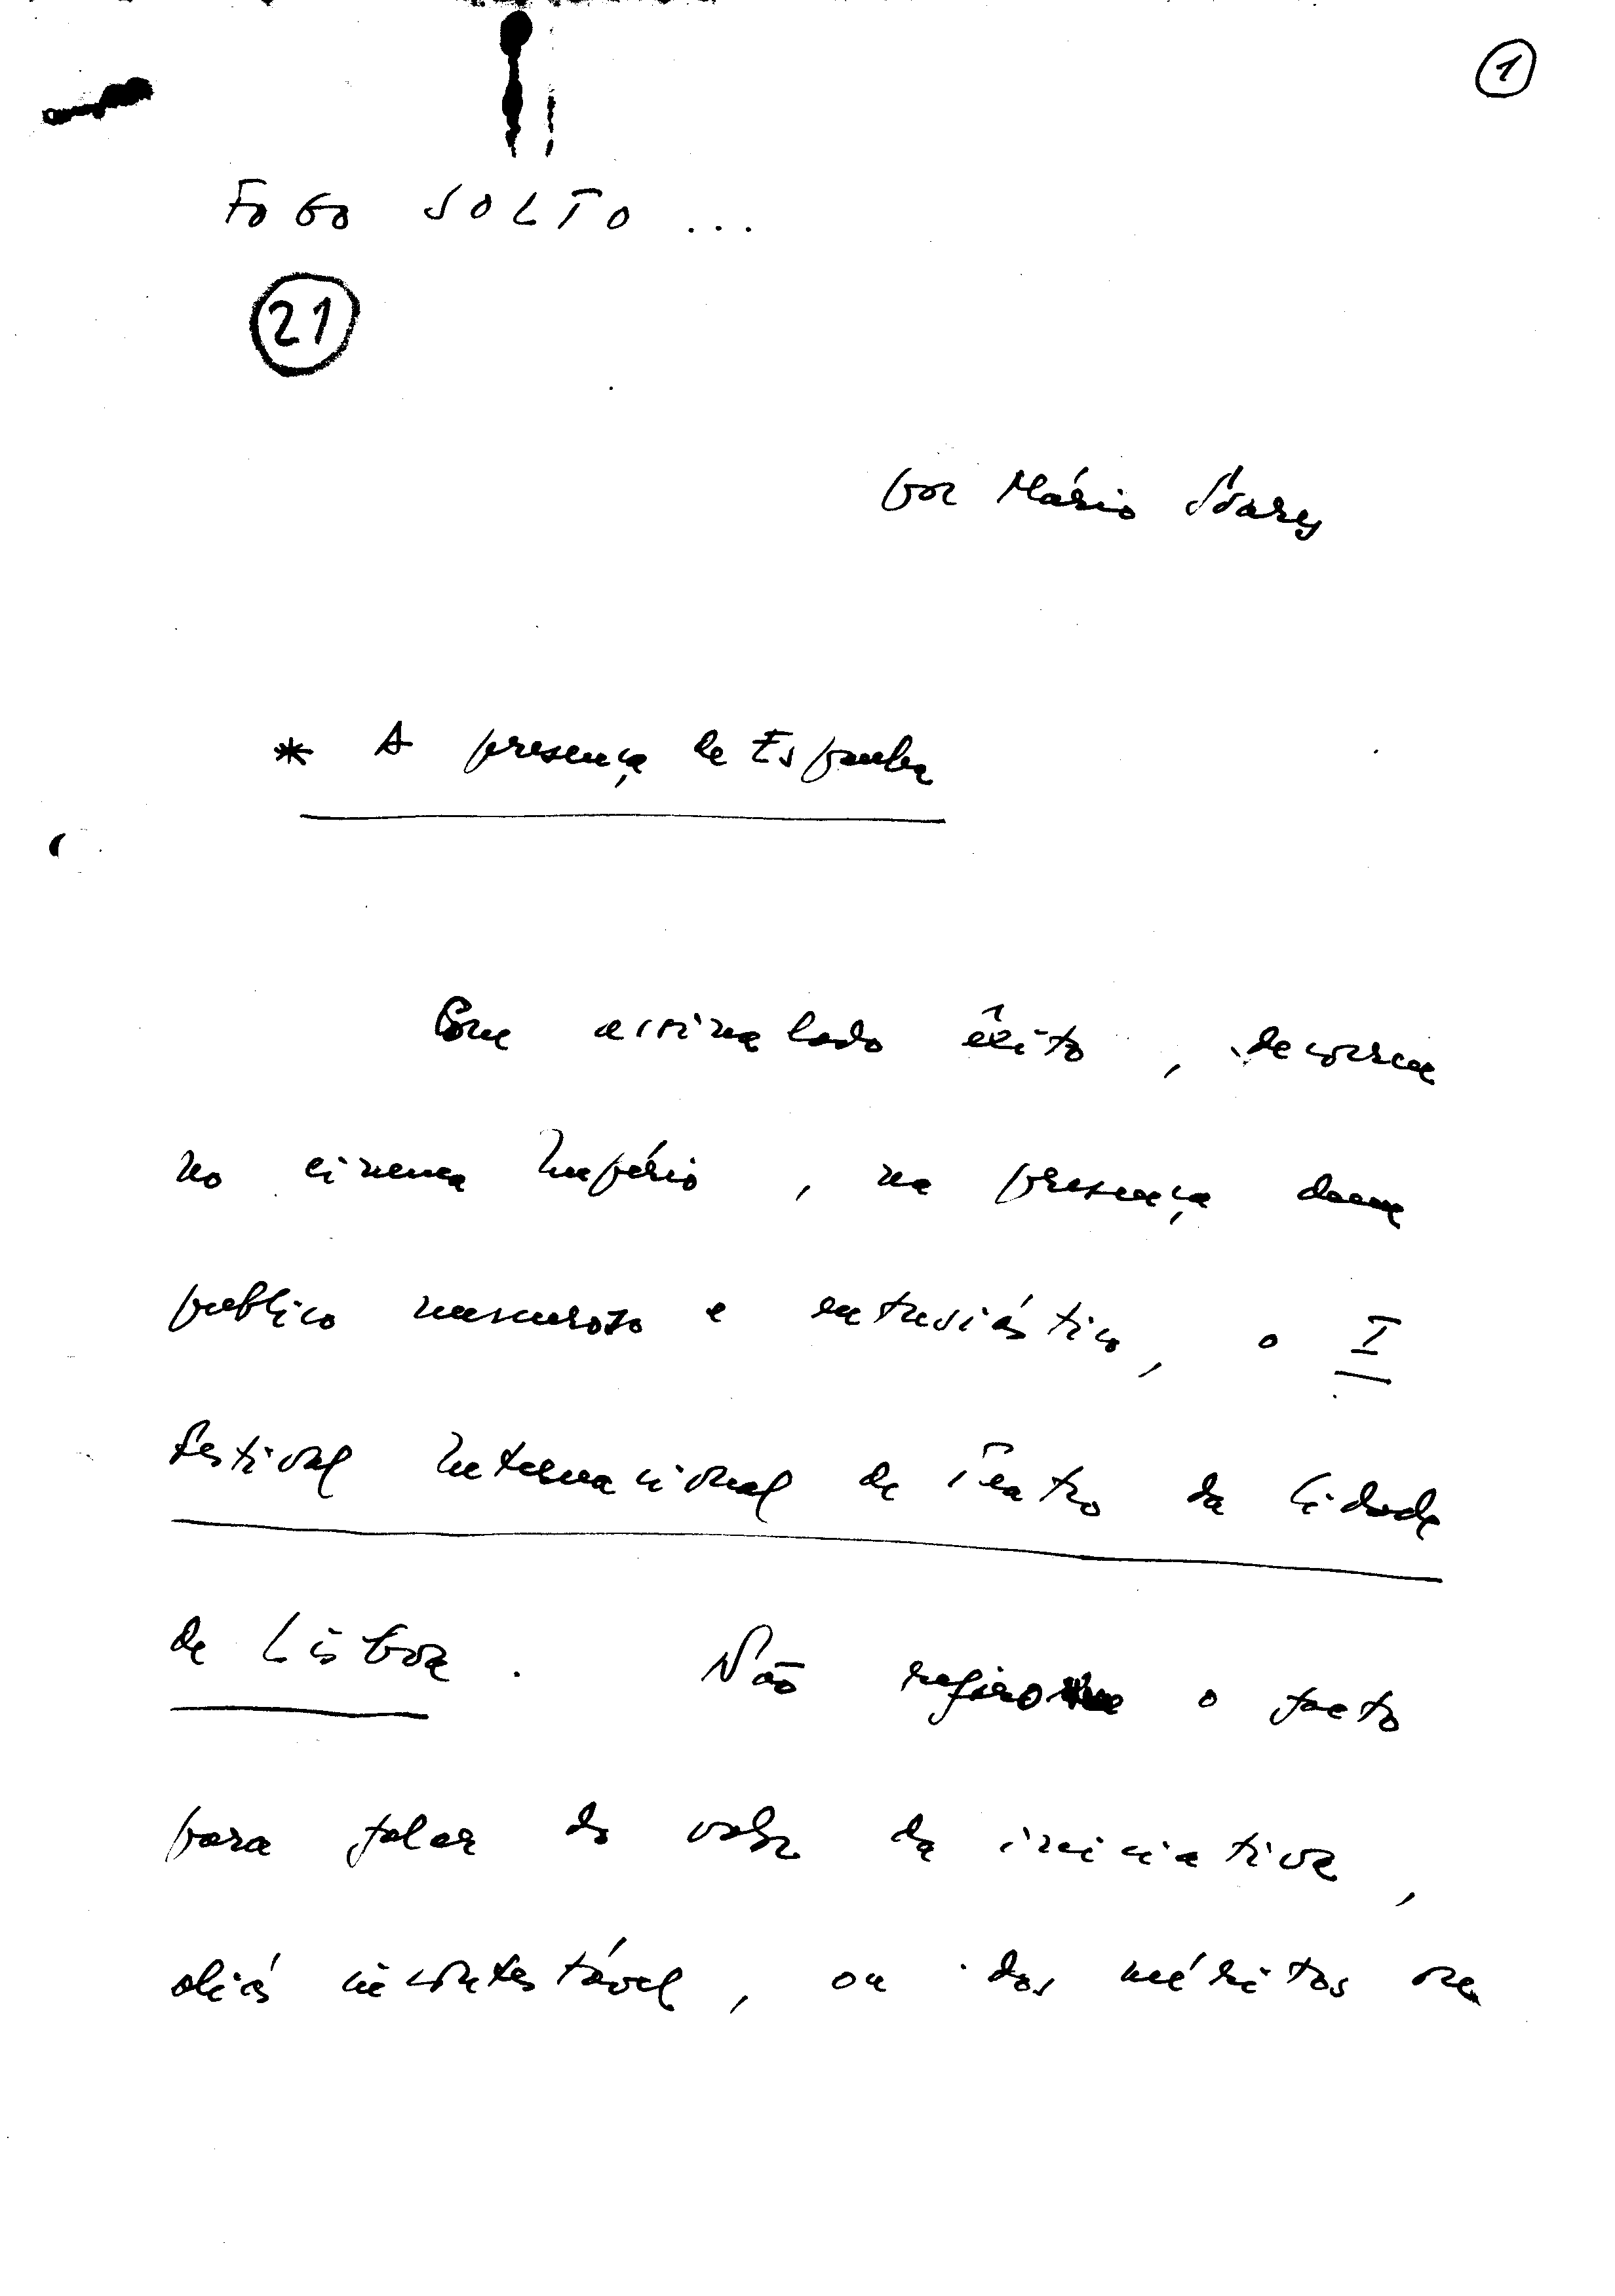 1
FOGO SOLTO ...
21
por Mário Soares
* A presença de Espanha
Com assinalado êxito, decorreu
no cinema Império, na presença dum
publico numeroso e entusiástico, o I
Festival Internacional de Teatro da Cidade
de Lisboa. Não refiro o facto
para falar do valor da iniciativa,
aliás incontestável, ou dos méritos ou